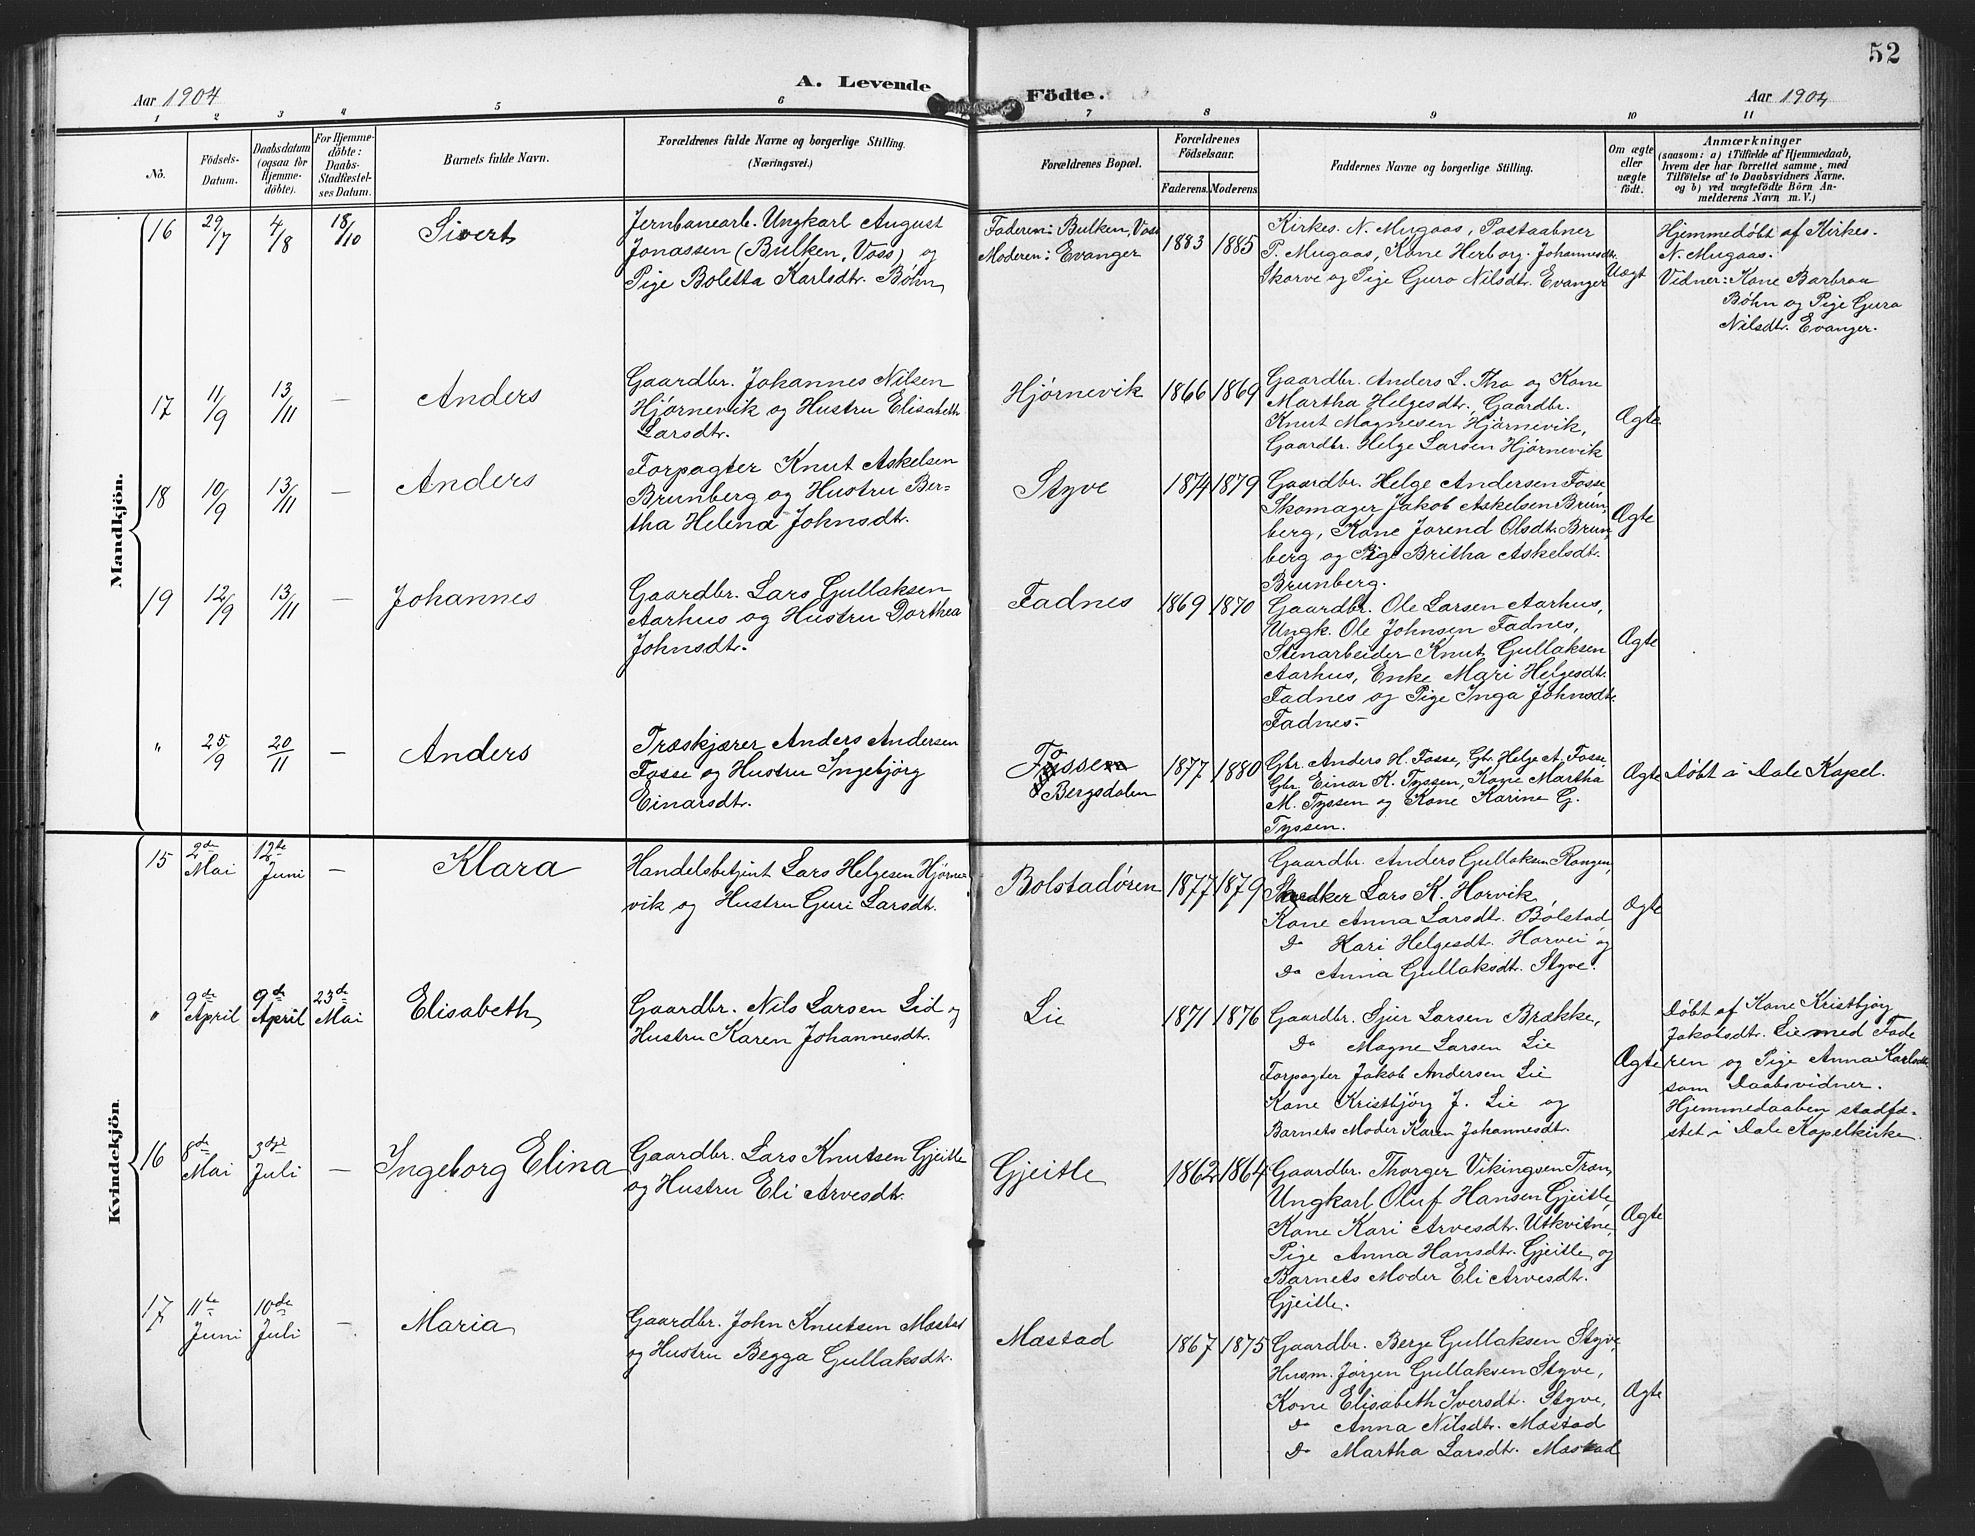 52
Aar 1904
A. Levende Födte.
Aar 1904
1 2 3 4 5 6 7 8 9 10 11
No.
Födsels-
Datum.
Daabsdatum
(ogsaa for
Hjemme-
döbte).
For Hjemme-
döbte:
Daabs-
Stadfæstel-
ses Datum.
Barnets fulde Navn.
Forældrenes fulde Navne og borgerlige Stilling.
(Næringsvei.)
Forældrenes Bopæl.
Forældrenes
Födselsaar.
Faderens. Moderens.
Faddernes Navne og borgerlige Stilling.
Om ægte
eller
uægte
födt.
Anmærkninger
(saasom: a) i Tilfælde af Hjemmedaab,
hvem der har forrettet samme, med
Tilföielse af to Daabsvidners Navne,
og b) ved uægtefödte Börn An-
melderens Navn m. V.)
Mandkjön.
16
29/7
4/8
18/10
Sivert
Jernbanearb. Ungkarl August
Jonassen (Bulken, Voss) og
Pige Boletta Karlsdtr. Bøhn
Faderen: Bulken, Voss
Moderen: Evanger
1883 1885
Kirkes. N. Mugaas, Postaabner
P. Mugaas, Kone Herborg Johannesdtr.
Skorve og Pige Guro Nilsdtr. Evanger
Uægt
Hjemmedøbt af Kirkes.
N. Mugaas.
Vidner: Kone Barbraa
Bøhn og Pige Guro
Nilsdtr. Evanger.
17
11/9
13/11
—
Anders
Gaardbr. Johannes Nilsen
Hjørnevik og Hustru Elisabeth
Larsdtr.
Hjørnevik
1866 1869
Gaardbr. Anders L. Tho og Kone
Martha Helgesdtr., Gaardbr.
Knut Magnesen Hjørnevik,
Gaardbr. Helge Larsen Hjørnevik
Ægte
18
10/9
13/11
—
Anders
Forpagter Knut Askelsen
Brunberg og Hustru Ber-
tha Helena Johnsdt.
Styve
1874 1879
Gaardbr. Helge Andersen Fosse
Skomager Jakob Askelsen Brün-
berg, Kone Jorend Olsdt. Brun-
berg og Pige Britha Askelsdt.
Brunberg.
Ægte
19
12/9
13/11
—
Johannes
Gaardbr. Lars Gullaksen
Aarhus og Hustru Dorthea
Johnsdtr.
Fadnes
1869 1870
Gaardbr. Ole Larsen Aarhus,
Ungk. Ole Johnsen Fadnes,
Stenarbeider Knut Gullaksen
Aarhus, Enke Mari Helgesdt.
Fadnes og Pige Inga Johnsdt.
Fadnes.
Ægte
"
25/9
20/11
—
Anders
Træskjærer Anders Andersen
Fosse og Hustru Ingebjörg
Einarsdt.
Bergsdalen
1877 1880
Gbr. Anders H. Fosse, Gbr. Helge A. Fosse,
Gbr. Einar K. Tyssen, Kone Martha
M. Tyssen og Kone Karine G.
Tyssen.
Ægte
Døbt i Dale Kapel.
Kvindekjön
15
2de
Mai
12te
Juni
—
Klara
Handelsbetjent Lars Helgesen Hjørne-
vik og Hustru Guri Larsdt.
Bolstadøren
1877 1879
Gaardbr. Anders Gullaksen Rongen,
Lars K. Horvik,
Kone Anna Larsdt. Bolstad
Do Kari Helgesdt. Horvei og
Do Anna Gullaksdt. Styve.
Ægte
"
9de
April
9de
April
23de
Mai
Elisabeth
Gaardbr. Nils Larsen Lid og
Hustru Karen Johannesdt.
Lie
1871 1876
Gaardbr. Sjur Larsen Brække,
Do Magne Larsen Lie
Forpagter Jakob Andersen Lie
Kone Kristbjörg J. Lie og
Barnets Moder Karen Johannesdt.
Ægte
Døbt af Kone Kristbjörg
Jakobsdt. Lie med Fade
ren og Pige Anna Karlsdtr.
som Daabsvidner.
Hjemmedaaben stadfæ-
stet i Dale Kapelkirke.
16
8de
Mai
3dje
Juli
—
Ingeborg Elina
Gaardbr. Lars Knutsen Gjeitle
og Hustru Eli Arvesdt.
Gjeitle
1862 1864
Gaardbr. Thorger Vikingsen Træn,
Ungkarl Oluf Hansen Gjeitle,
Kone Kari Arvesdtr. Utkvitne,
Pige Anna Hansdtr. Gjeitle, og
Barnets Moder Eli Arvesdt.
Gjeitle.
Ægte
17
11te
Juni
10de
Juli
—
Maria
Gaardbr. John Knutsen Mæstad
og Hustru Begga Gullaksdt.
Mæstad
1867 1875
Gaardbr. Berge Gullaksen Styve,
Husm. Jørgen Gullaksen Styve,
Kone Elisabeth Iversdt. Styve,
Do Anna Nilsdtr. Mæstad
Do Martha Larsdtr. Mæstad
Ægte